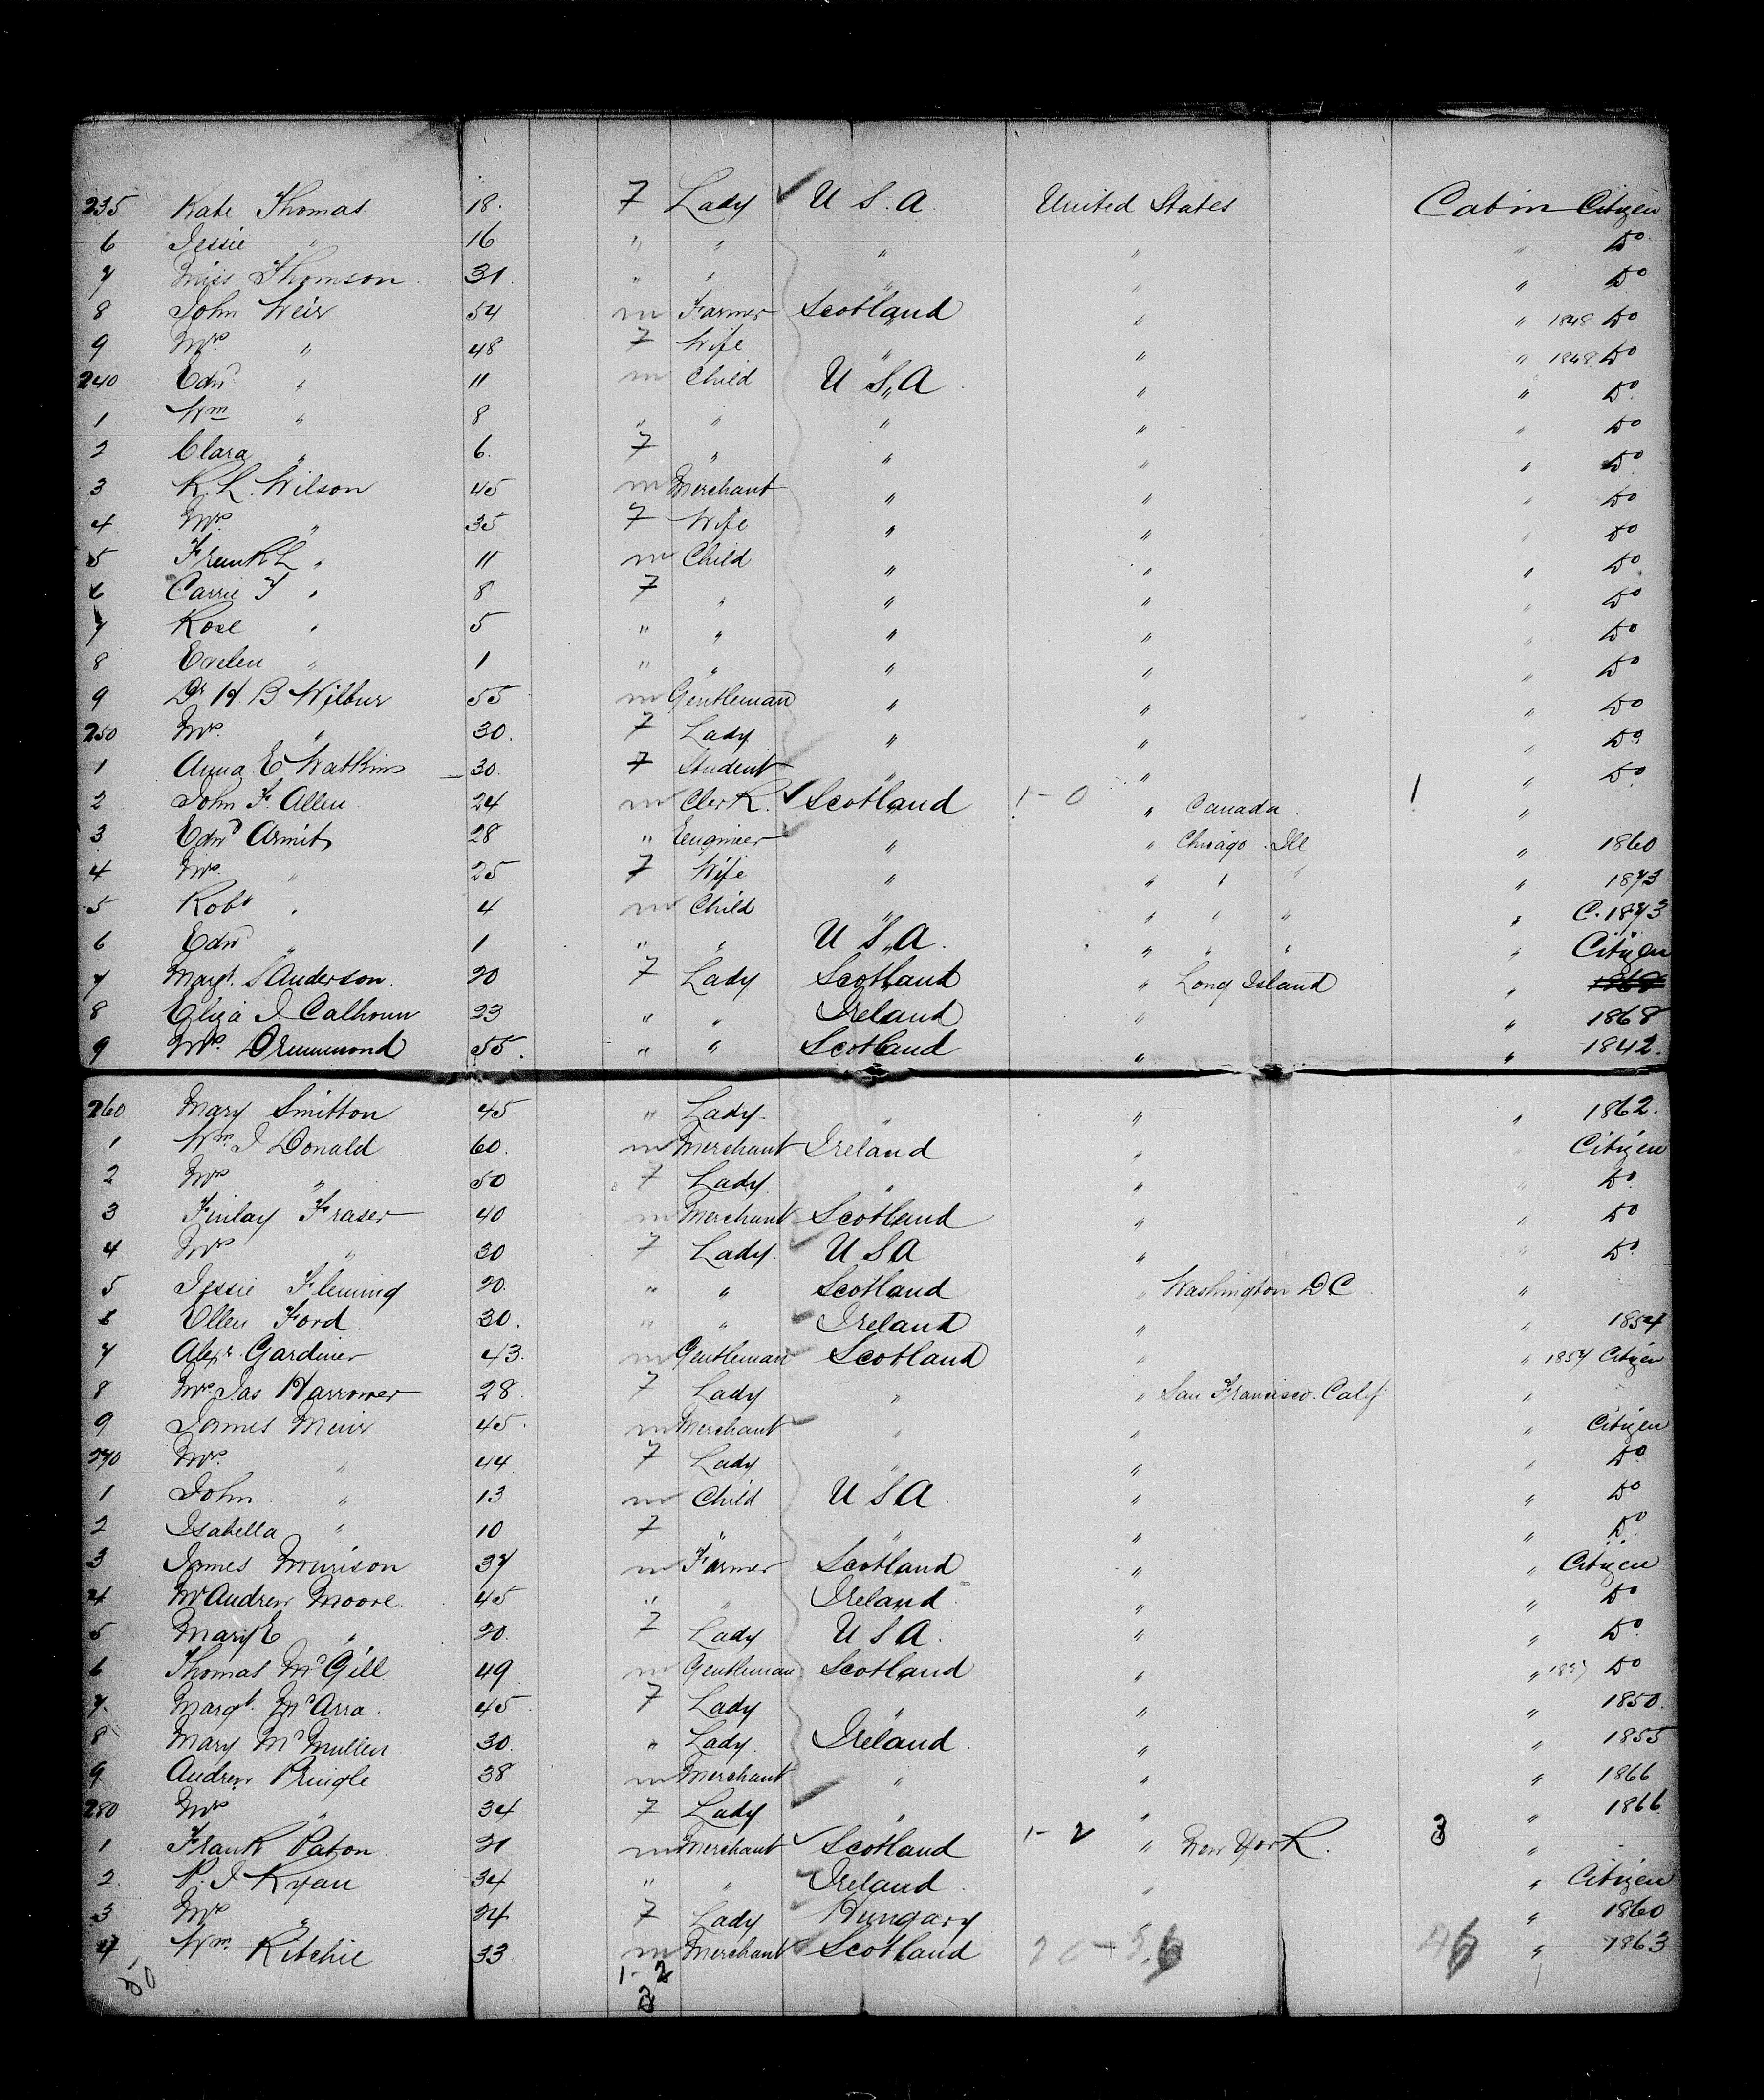 235 Kate Thomas 18. F Lady ✓ U S. A. United States Cabin Citizen
6 Jessie " 16 " " " " " Do
7 Miss Thomson. 31. " " " " " Do
8 John Weir 54 m Farmer Scotland " " 1848 Do
9 Mrs " 48 F Wife " " " 1848 Do
240 Edwd " 11 m Child U S A. " " Do
1 Wm " 8 " " " " " Do
2 Clara " 6. F " " " " Do
3 R. L. Wilson 45 m Merchant " " " Do
4 Mrs " 35 F Wife " " " Do
5 Frank L " 11 m Child " " " Do
6 Carrie F " 8 F " " " " Do
7 Rose " 5 " " " " " Do
8 Evelen " 1 " " " " " Do
9 Dr H. B Wilbur 55 m Gentleman " " " Do
250 Mrs. " 30. F Lady " " " Do
1 Anna E Watkins 30. F Student " " " Do
2 John F. Allen 24 m Clerk. ✓ Scotland 1 - 0 " Canada. 1 "
3 Edwd Armit 28 " Eengineer " " Chicago. Ill " 1860
4 Mrs. " 25 F Wife " " " " " 1873
5 Robt " 4 m Child " " " " " C. 1873
6 Edwd " 1 " " U S A. " " " " Citizen
7 Margt. S Anderson. 20 F Lady Scotland " Long Island "
8 Eliza J. Calhoun 23 " " Ireland " " 1868
9 Mrs. Drummond 55. " " Scotland " " 1842.
260 Mary Smitton 45 " Lady. " " " 1862.
1 Wm J Donald 60. m Merchant Ireland " " Citizen
2 Mrs " 50 F Lady " " " Do
3 Finlay Fraser 40 m Merchant Scotland " " Do
4 Mrs " 30 F Lady. U S A " " Do
5 Jessie Fleming 20. " " Scotland " Washington DC. "
6 Ellen Ford. 30. " " Ireland " " 1854
7 Alexr. Gardiner 43. m Gentleman Scotland " " 1857 Citizen
8 Mrs Jas Harrower 28. F Lady " " San Francisco. Calif "
9 James Meur 45. m Merchant " " " Citizen
270 Mrs. " 44 F Lady " " " Do
1 John " 13 m Child U S A. " " Do
2 Isabella " 10 F " " " " Do
3 James Murison 37 m Farmer Scotland " " Citizen
4 Mr Andrew Moore. 45 " " Ireland " " Do
5 Mary E " 20. F Lady U S A. " " Do
6 Thomas McGill 49 m Gentleman Scotland " " Do
7. Margt. McArra. 45 F Lady " " " 1850.
8 Mary McMullen 30. " Lady Ireland. " " 1855
9 Andrew Pringle 38 m Merchant " " " 1866
280 Mrs " 34 F Lady " " " 1866
1 Frank Paton 21 m Merchant ✓ Scotland 1 - 2 " New York. 3 "
2. P. J Ryan 34 " " Ireland. " " Citizen
3 Mrs " 24 F Lady Hungary " 1860
4 Wm. Ritchie 33 m Merchant Scotland " 1863
50 1 - 2
3